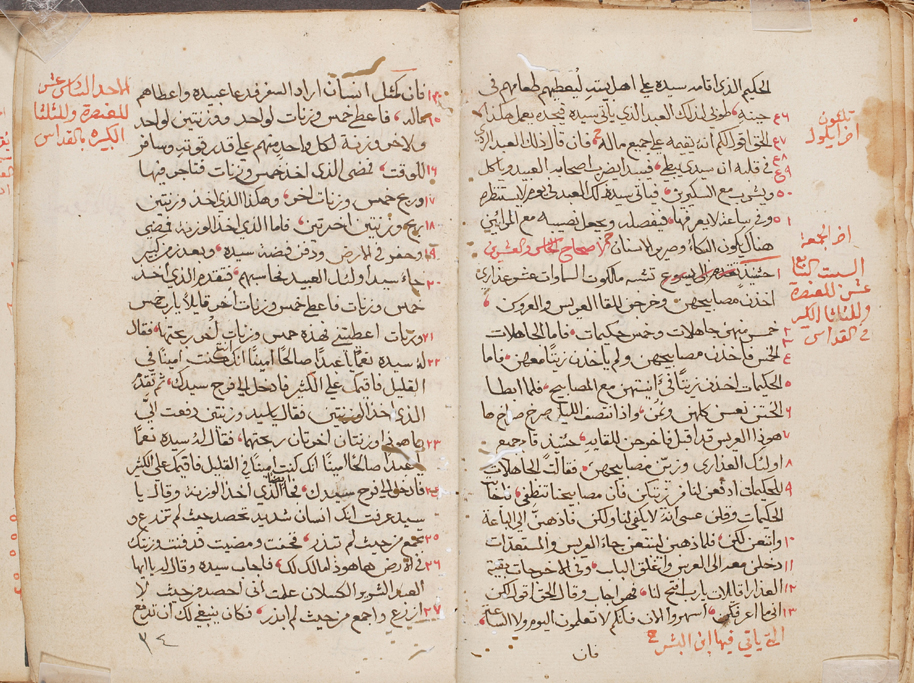 الحكيم الذي اقامه سيده على اهل بيته ليعطيهم طعامهم في
حينه طوبى لذلك العبد الذي ياتي سيده فيجده يعمل هكذا
الحق اقول لكم انه يقيمه على جميع ماله فان قال ذلك العبد الردي
في قلبه ان سيدي يبطي فيبدا يضرب اصحابه العبيد وياكل
ويشرب مع السكيرين فياتي سيد ذلك العبد في يوم لا ينتظره
وفي ساعة لا يعرفها فيفصله ويجعل نصيبه مع المرائيين
هناك يكون البكاء وصرير الاسنان الاصحاح الخامس والعشرون
حينئذ تشبه ملكوت السماوات عشر عذاري
اخذن مصابيحهن وخرجن للقا العريس والعروس
خمس منهن جاهلات وخمس حكيمات فاما الجاهلات
الخمس فاخذن مصابيحهن ولم ياخذن زيتا معهن فاما
الحكيمات اخذن زيتا في انيتهن مع المصابيح فلما ابطا
الختن نعسن كلهن ونمن واذا انتصف الليل صرخ صراخ ها
هوذا العريس قد اقبل فاخرجن للقايه حينئذ قام جميع
اولئك العذاري وزين مصابيحهن فقالت الجاهلات
للحكيمات ادفعن لنا من زيتكن فان مصابيحنا تنطفي فاجابن
الحكيمات وقلن عسى انه لا يكفي لنا ولكن فاذهبن الى الباعة
وابتعن لكن فلما ذهبن ليبتعن جاء العريس والمستعدات
دخلن معه الى العرس واغلق الباب وفي الاخر جات بقية
العذاري قايلات يا رب افتح لنا فهو اجاب وقال الحق اقول لكن
اني ما اعرفكن اسهروا الان فانكم لا تعلمون اليوم ولا الساعة
التي ياتي فيها ابن البشر
فان
تلقون
اخر ايلول
اخر الجمعة
السبت التاسع
عشر للعنصرة
وللثلثا الكبير
في القداس
٤٦
٤٧
٤٨
٤٩
٥٠
٥١
١
٢
٣
٤
٥
٦
٧
٨
٩
١٠
١١
١٢
١٣
فان كمثل انسان اراد السفر فدعا عبيده واعطاهم
ماله فاعطى خمس وزنات لواحد ووزنتين لواحد
ولاخر وزنة لكل واحد منهم على قدر قوته وسافر
للوقت فمضى الذي اخذ خمس وزنات فتاجر فيها
وربح خمس وزنات اخر وهكذا الذي اخذ وزنتين
ربح وزنتين اخرتين فاما الذي اخذ الوزنة فمضى
وحفر في الارض ودفن فضة سيده وبعد زمن كبير
جاء سيد اولئك العبيد فحاسبهم فتقدم الذي اخذ
خمس وزنات فاعطى خمس وزنات اخر قايلا يا رب خمس
وزنات اعطيتني فهذه خمس وزنات اخر ربحتها فقال
له سيده نعما يا عبدا صالحا امينا انك كنت امينا في
القليل فاقيمك على الكثير فادخل الى فرح سيدك ثم تقدم
الذي اخذ الوزنتين فقال يا سيد وزنتين دفعت الي
ها هوذا وزنتان اخريان ربحتهما فقال له سيده نعما
يا عبدا صالحا امينا انك كنت امينا في القليل فاقيمك على الكثير
فادخل الى فرح سيدك فجا الذي اخذ الوزنة وقال يا
سيد عرفت انك انسان شديد تحصد حيث لم تزرع و
تجمع من حيث لم تبذر فخفت ومضيت فدفنت وزنتك
في الارض ها هوذا مالك لك فاجاب سيده وقال له يا ايها
العبد الشرير الكسلان علمت اني احصد من حيث لا
ازرع واجمع من حيث لم ابذر فكان ينبغي لك ان تدفع
٣٤
الاحد السادس عشر
للعنصرة وللثلثا
الكبيره بالقداس
١٤
١٥
١٦
١٧
١٨
١٩
٢٠
٢١
٢٢
٢٣
٢٤
٢٥
٢٦
٢٧